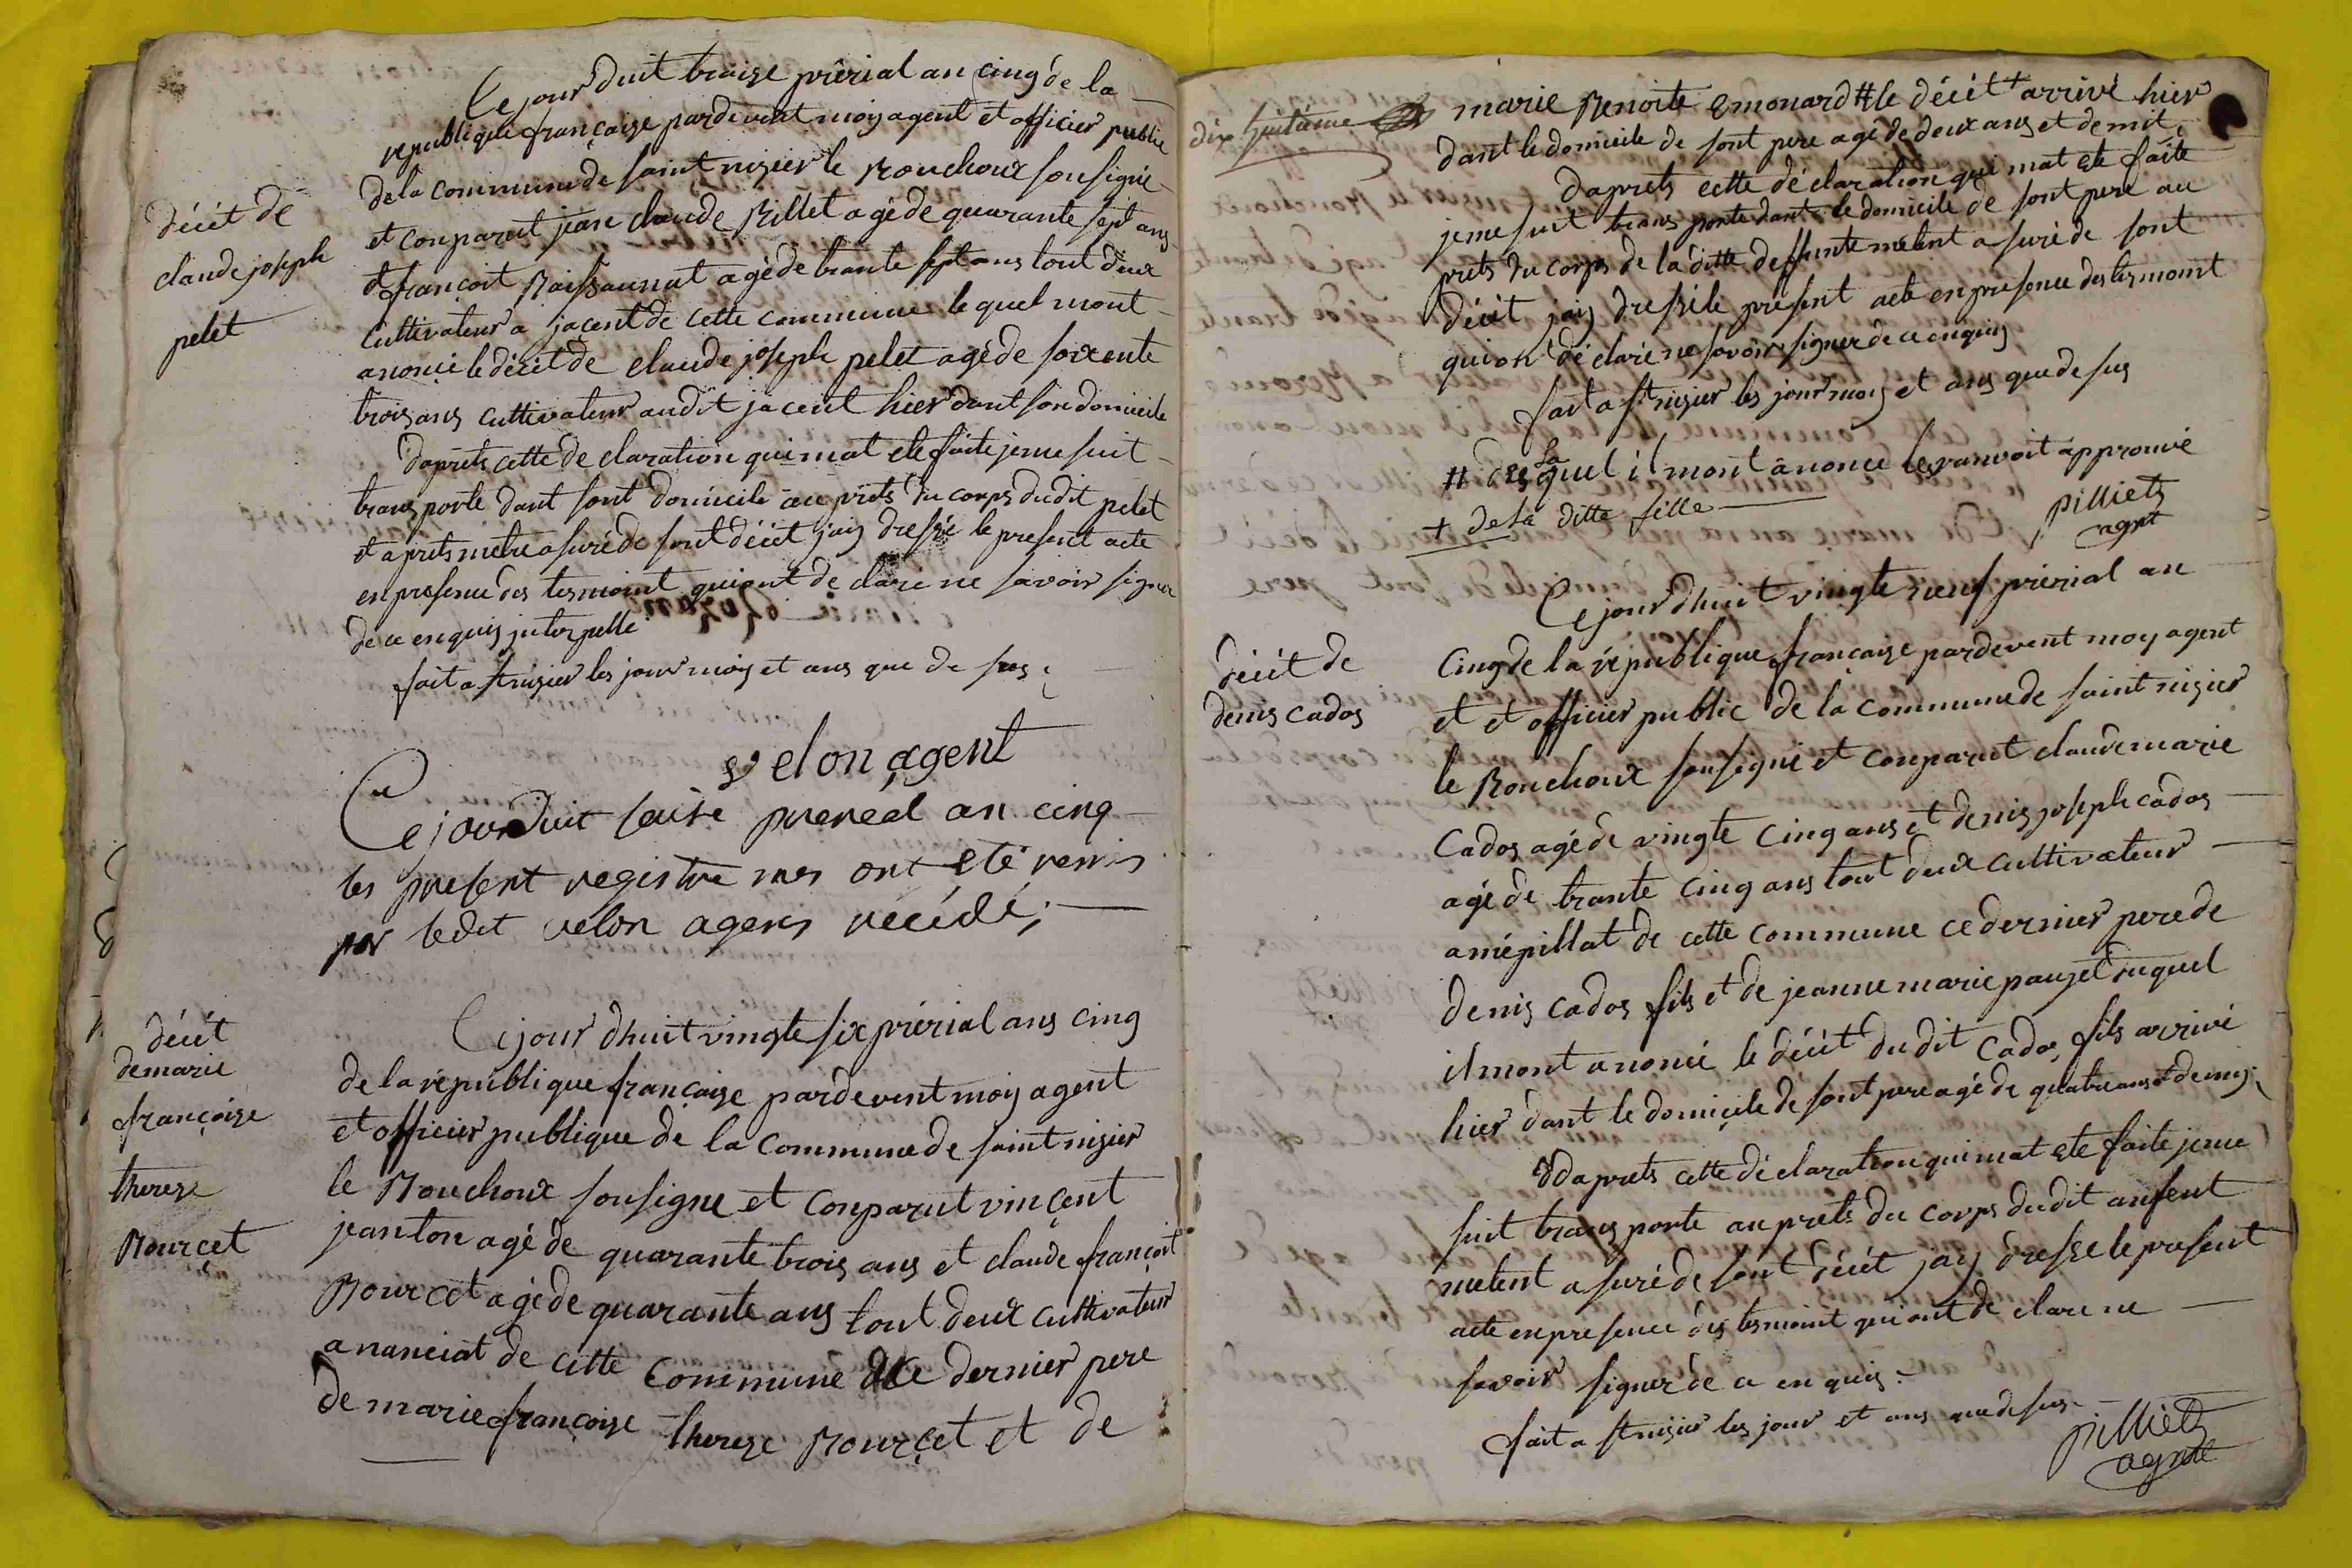 Ce jourduit traize prérial an cinq de la
republique françaize pardevent moy agent et officier public
de la commune de saint nizier le Bouchoux sousigné
et conparut jean claude Billet agé de quarante sept ans
et françoit Boissaunat agé de trante sept ans tout deux
cultivateur a jacent de cette commune le quel mont
anoncé le décét de claude joseph pelet agé de soixente
trois ans cultivateur audit jacent hier dant son domicile
daprets cette declaration qui mat eté faite je me suit
transporte dant sont domicile au prets du corps dudit pelet
et aprets metre asuré de sont décét jay dressé le present acte
en presence des tesmoint qui ont declaré ne savoir signer
de ce enquis interpellé
fait a st nizier les jour moy et ans que de sus
décét de
claude joseph
pelet
velon agent
Ce jourduit saise prereal an cinq
les present registre mes ont eté remis
par ledit velon agens décédé,
Ce jour dhuit vingte six prérial ans cinq
de la république françaize pardevent moy agent
et officier publique de la commune de saint nizier
le Bouchoux sousigne et conparut vinçent
jeanton agé de quarante trois ans et claude françoit
Bourcet agé de quarante ans tout deux cultivateur
a nanciat de cette commune ce dernier pere
de marie françoize thereze Bourçet et de
décét
de marie
françoize
thereze
Bourçet
dix huitième
marie Benoite Emonard # le décét + arrivé hier
dant le domicile de sont pere agé de deux ans et demit
daprets cette déclaration qui mat eté faite
je me suit transporté dant le domicile de sont pere au
prets du corps de la ditte deffunte metent asuré de sont
décét jay dressé le present acte en presence des tesmoint
qui on déclaré ne savoir signer de ce enquis
fait a st nizier les jour moy et ans que de sus
# des quel il mont anoncé le ranvoit approuvé
+ de la ditte fille
pilliet
agent
Ce jour dhuit vingte neuf prérial an
cinq de la république française pardevent moy agent
et et officier public de la commune de saint nizier
le Bouchoux sousigné et conparut claude marie
Cados agé de vingte cinq ans et denis joseph cados
agé de trante cinq ans tout deux cultivateur
a mépillat de cette commune ce dernier pere de
denis cados fils et de jeanne marie pauget duquel
il mont anoncé le décét du dit Cados fils arrivé
hier dant le domicile de sont pere agé de quatre ans et demy
daprets cette déclaration qui mat eté faite je me
suit transporte au prets du corps dudit anfent
metent asuré de sont décét jay dressé le present
acte en presence des tesmoint qui ont declaré ne
savoir signer de ce enquis
fait a st nizier les jour et ans que de sus
décét de
denis cados
pilliet
agent